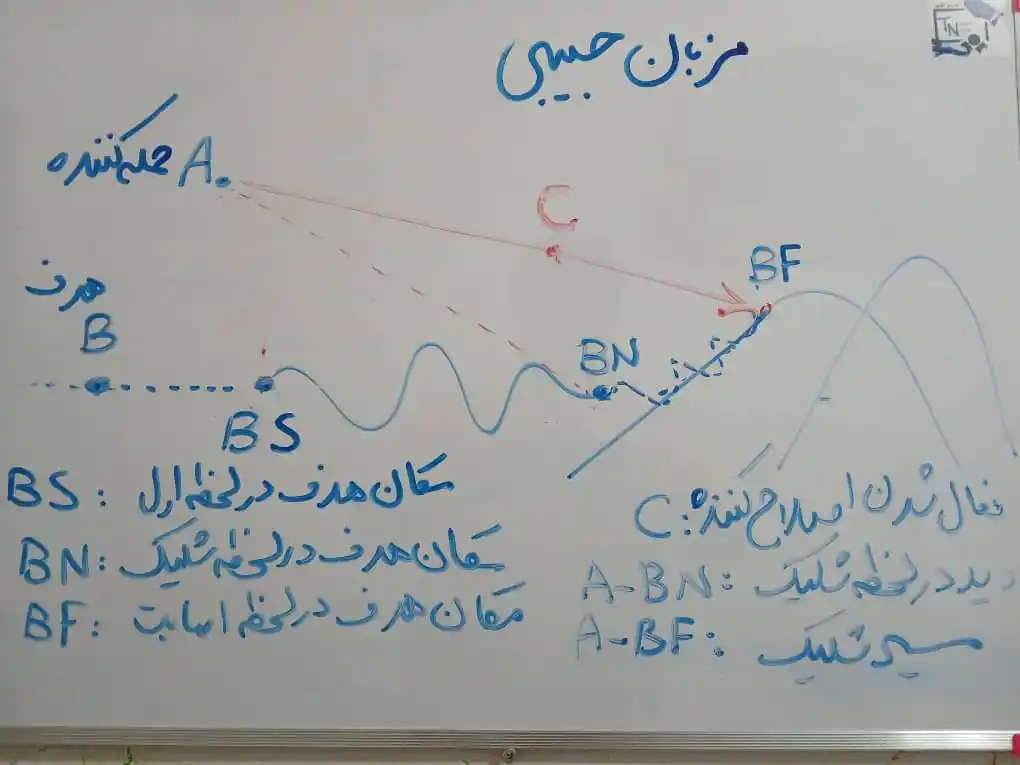 مرزبان حبیبی
TN
حمله‌کننده A
C
BF
هدف
B
BN
BS
BS: مکان هدف در لحظه اول
BN: مکان هدف در لحظه شلیک
BF: مکان هدف در لحظه اصابت
C: فعال شدن اصلاح کننده
A-BN: دید در لحظه شلیک
A-BF: مسیر شلیک